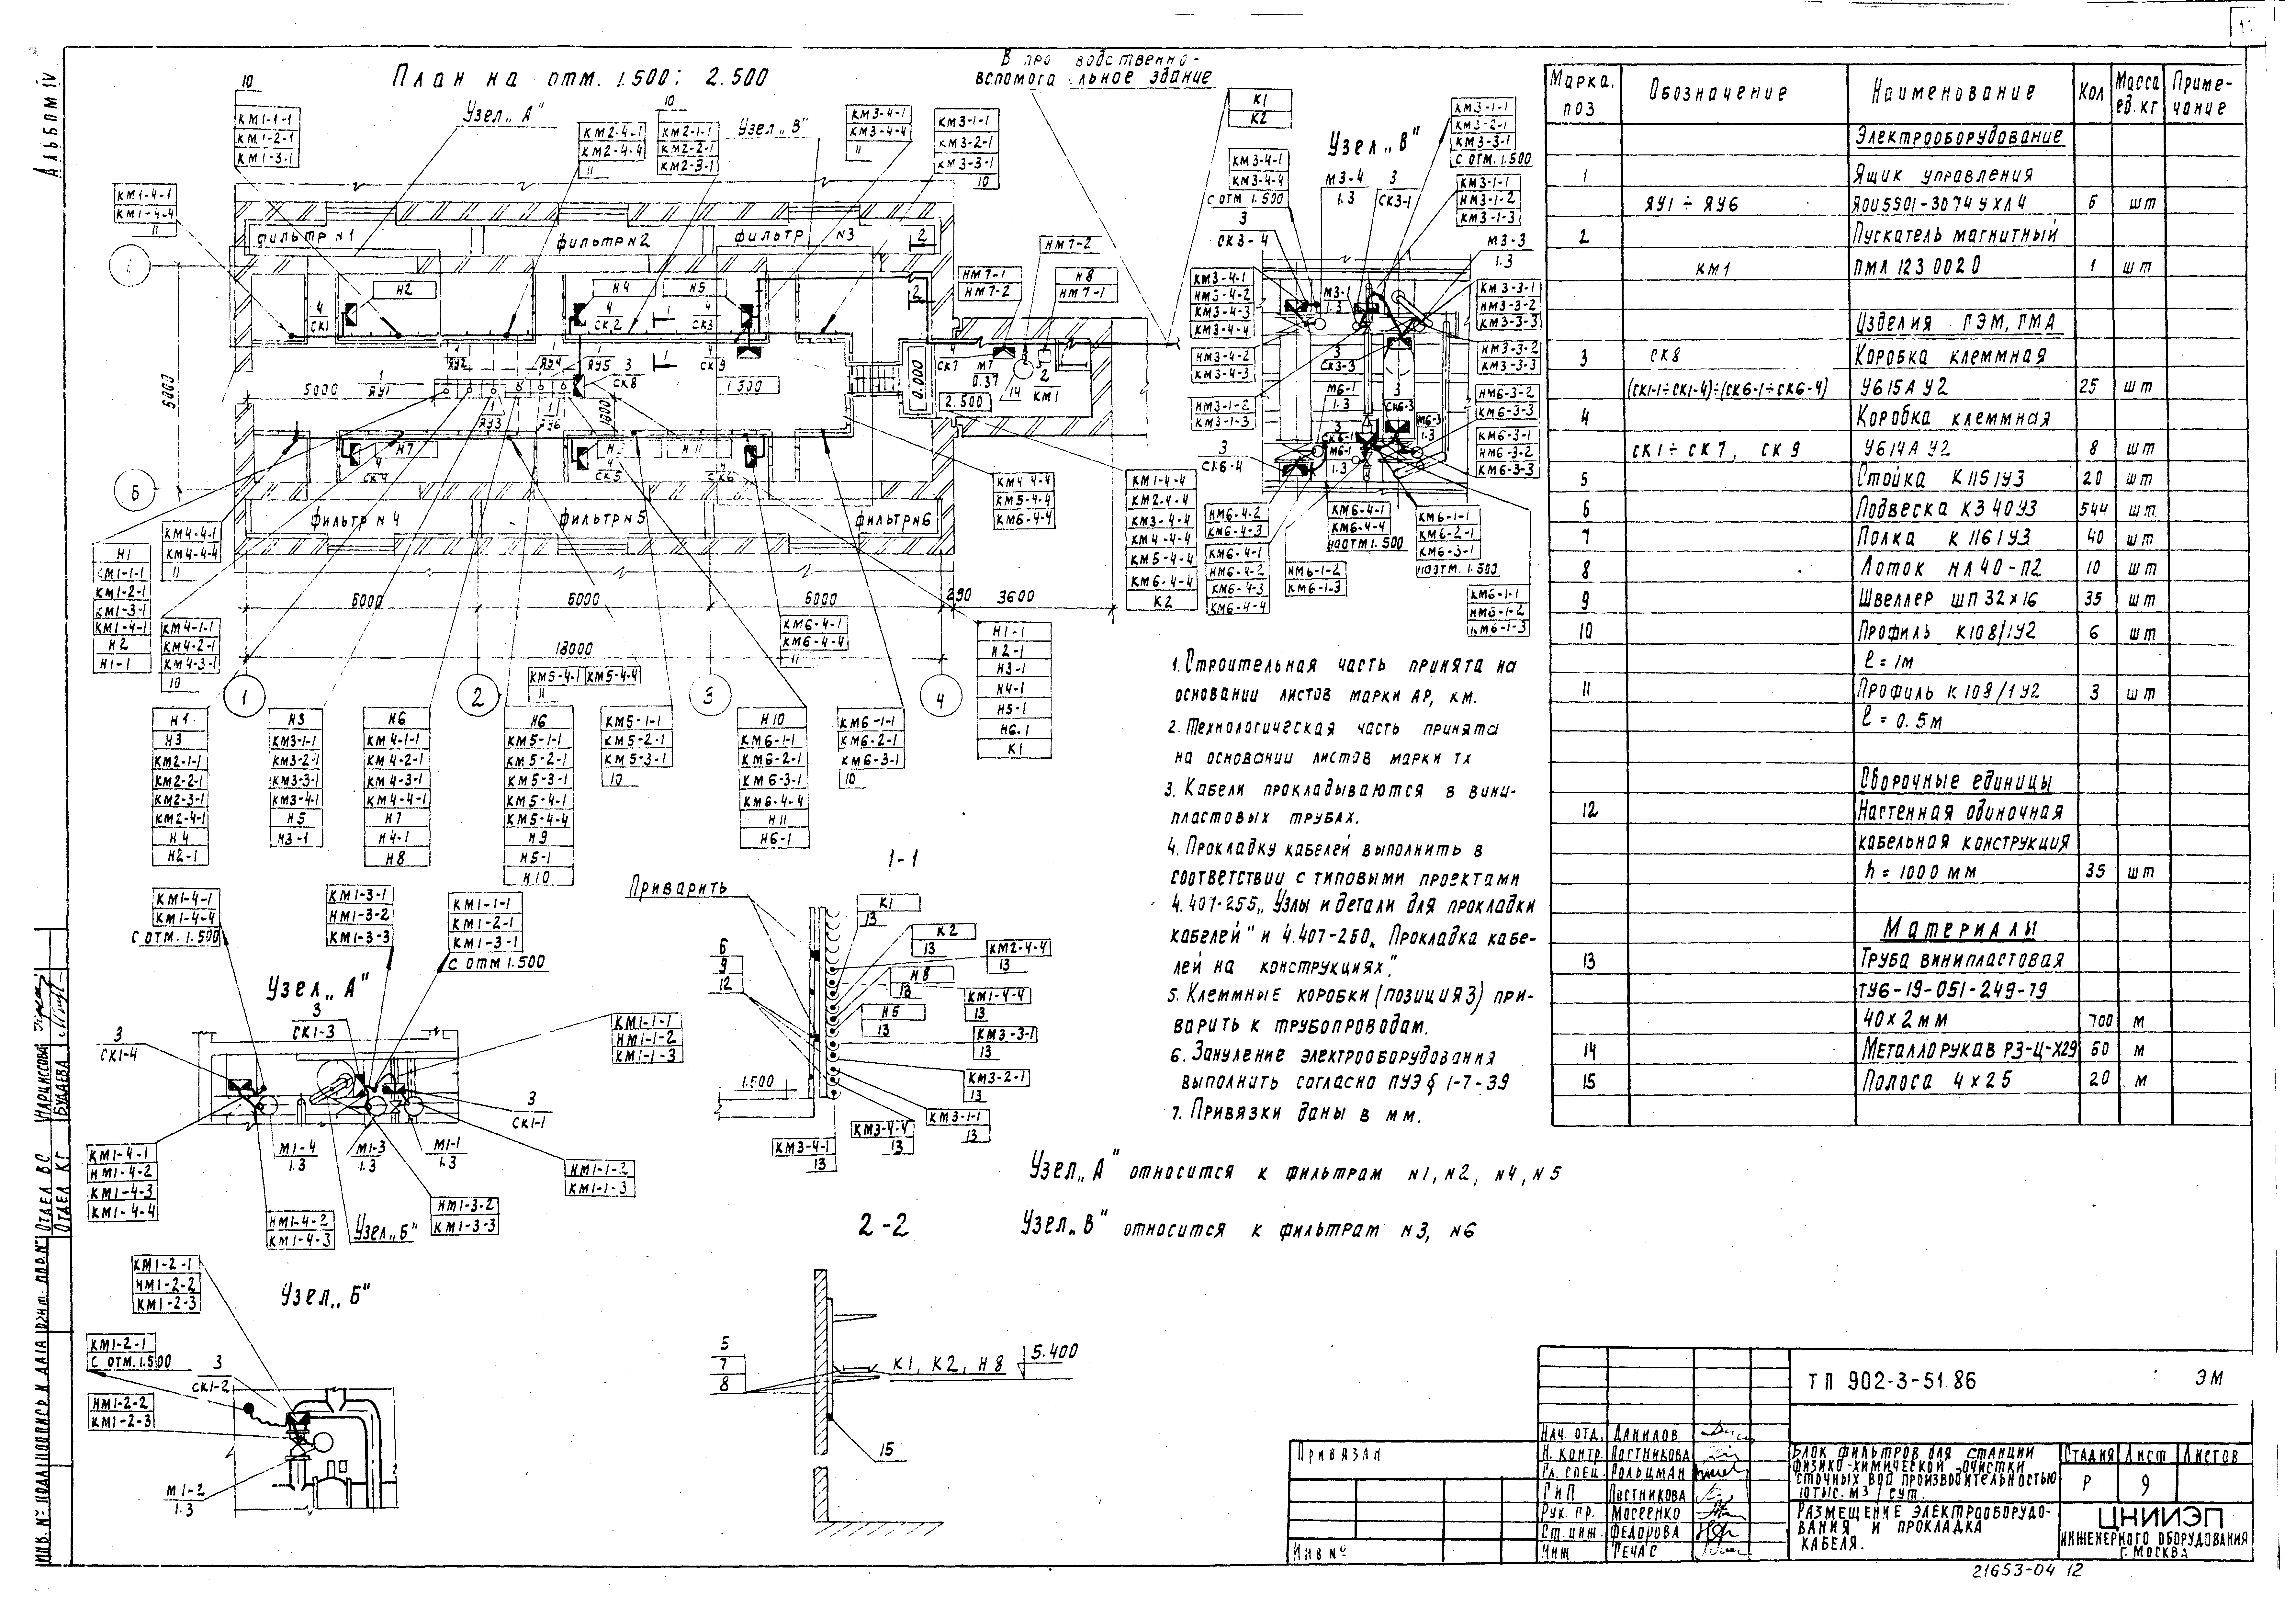 Альбом IV
План на отм. 1.500; 2.500
10
КМ1-1-1
КМ1-2-1
КМ1-3-1
Узел „А"
КМ2-4-1
КМ2-4-4
11
10
КМ2-1-1
КМ2-2-1
КМ2-3-1
Узел „В"
КМ3-4-1
КМ3-4-4
11
КМ3-1-1
КМ3-2-1
КМ3-3-1
10
вспомога
льное здание
К1
К2
КМ1-4-1
КМ1-4-4
11
фильтр N1
фильтр N2
фильтр N3
2
2
Н2
Н4
Н5
4
СК1
4
СК2
4
СК3
1
1
НМ7-1
НМ7-2
НМ7-2
Н8
НМ7-1
ЯУ2
ЯУ4
ЯУ5
3
СК8
4
СК9
1.500
0.000
2.500
4
СК7
М7
0.37
14
2
КМ1
5000
1
ЯУ1
1
ЯУ3
1
ЯУ6
6000
Б
Н7
4
СК4
4
СК5
4
СК6
фильтр N 4
фильтр N5
фильтр N6
КМ4 4-4
КМ5-4-4
КМ6-4-4
КМ1-4-4
КМ2-4-4
КМ3-4-4
КМ4-4-4
КМ5-4-4
КМ6-4-4
К2
КМ4-4-1
КМ4-4-4
11
Н1
КМ1-1-1
КМ1-2-1
КМ1-3-1
КМ1-4-1
Н2
Н1-1
КМ4-1-1
КМ4-2-1
КМ4-3-1
10
6000
6000
6000
290
3600
18000
1
2
3
4
КМ5-4-1
КМ5-4-4
11
КМ6-4-1
КМ6-4-4
11
Н1-1
Н2-1
Н3-1
Н4-1
Н5-1
Н6-1
К1
Н1
Н3
КМ2-1-1
КМ2-2-1
КМ2-3-1
КМ2-4-1
Н4
Н2-1
Н3
КМ3-1-1
КМ3-2-1
КМ3-3-1
КМ3-4-1
Н5
Н3-1
Н6
КМ4-1-1
КМ4-2-1
КМ4-3-1
КМ4-4-1
Н7
Н4-1
Н8
Н6
КМ5-1-1
КМ5-2-1
КМ5-3-1
КМ5-4-1
КМ5-4-4
Н9
Н5-1
Н10
КМ5-1-1
КМ5-2-1
КМ5-3-1
10
Н10
КМ6-1-1
КМ6-2-1
КМ6-3-1
КМ6-4-4
Н11
Н6-1
КМ6-1-1
КМ6-2-1
КМ6-3-1
10
Узел „В"
КМ3-1-1
КМ3-2-1
КМ3-3-1
с отм. 1.500
КМ3-4-1
КМ3-4-4
с отм 1.500
3
СК3-4
М3-4
1.3
3
СК3-1
КМ3-1-1
НМ3-1-2
КМ3-1-3
М3-3
1.3
КМ3-4-1
НМ3-4-2
КМ3-4-3
КМ3-4-4
М3-1
1.3
КМ3-3-1
НМ3-3-2
КМ3-3-3
НМ3-4-2
КМ3-4-3
3
СК3-3
НМ3-3-2
КМ3-3-3
НМ3-1-2
КМ3-1-3
М6-1
1.3
3
СК6-3
НМ6-3-2
КМ6-3-3
3
СК6-4
3
СК6-1
М6-1
1.3
М6-3
1.3
КМ6-3-1
НМ6-3-2
КМ6-3-3
НМ6-4-2
КМ6-4-3
КМ6-4-1
НМ6-4-2
КМ6-4-3
КМ6-4-4
КМ6-4-1
КМ6-4-4
на отм 1.500
КМ6-1-1
КМ6-2-1
КМ6-3-1
на отм. 1.500
НМ6-1-2
КМ6-1-3
КМ6-1-1
НМ6-1-2
КМ6-1-3
1. Строительная часть принята на
основании листов марки АР, КМ.
2. Технологическая часть принята
на основании листов марки ТХ
3. Кабели прокладываются в вини-
пластовых трубах.
4. Прокладку кабелей выполнить в
соответствии с типовыми проектами
4.407-255 „Узлы и детали для прокладки
кабелей" и 4.407-260 „Прокладка кабе-
лей на конструкциях".
5. Клеммные коробки (позиция 3) при-
варить к трубопроводам.
6. Зануление электрооборудования
выполнить согласно ПУЭ § 1-7-39
7. Привязки даны в мм.
Узел „А" относится к фильтрам N1, N2, N4, N5
Узел „В" относится к фильтрам N3, N6
КМ1-4-1
КМ1-4-4
с отм. 1.500
КМ1-3-1
НМ1-3-2
КМ1-3-3
КМ1-1-1
КМ1-2-1
КМ1-3-1
с отм 1.500
Узел „А"
3
СК1-3
3
СК1-4
КМ1-1-1
НМ1-1-2
КМ1-1-3
3
СК1-1
М1-4
1.3
М1-3
1.3
М1-1
1.3
КМ1-4-1
НМ1-4-2
КМ1-4-3
КМ1-4-4
НМ1-4-2
КМ1-4-3
Узел „Б"
НМ1-3-2
КМ1-3-3
НМ1-1-2
КМ1-1-3
Узел „Б"
КМ1-2-1
НМ1-2-2
КМ1-2-3
КМ1-2-1
с отм. 1.500
3
СК1-2
НМ1-2-2
КМ1-2-3
М1-2
1.3
1-1
Приварить
К1
13
К2
13
КМ2-4-4
13
Н8
13
КМ1-4-4
13
Н5
13
КМ3-3-1
13
КМ3-2-1
13
КМ3-1-1
13
КМ3-4-4
13
КМ3-4-1
13
6
9
12
1.500
2-2
5
7
8
К1, К2, Н8
5.400
15
Марка, поз | Обозначение | Наименование | Кол | Масса ед. кг | Приме-чание
Электрооборудование
1 Ящик управления
ЯУ1 ÷ ЯУ6 ЯОИ5901-3074УХЛ4 6 шт
2 Пускатель магнитный
КМ1 ПМЛ 123 002 0 1 шт
Изделия ГЭМ, ГМА
3 СК8 Коробка клеммная
(СК1-1÷СК1-4)÷(СК6-1÷СК6-4) У615А У2 25 шт
4 Коробка клеммная
СК1 ÷ СК7, СК9 У614А У2 8 шт
5 Стойка К1151У3 20 шт
6 Подвеска К340У3 544 шт
7 Полка К1161У3 40 шт
8 Лоток НЛ40-П2 10 шт
9 Швеллер ШП 32×16 35 шт
10 Профиль К108/1У2 6 шт
ℓ = 1м
11 Профиль К108/1У2 3 шт
ℓ = 0.5м
Сборочные единицы
12 Настенная одиночная
кабельная конструкция
h = 1000 мм 35 шт
Материалы
13 Труба винипластовая
ТУ6-19-051-249-79
40×2 мм 700 м
14 Металлорукав РЗ-Ц-Х29 60 м
15 Полоса 4×25 20 м
ТП 902-3-51.86 ЭМ
Привязан
Инв №
Нач. отд. Данилов
Н. контр. Постникова
Гл. спец. Гольцман
ГИП Постникова
Рук. гр. Мосеенко
Ст. инж. Федорова
Инж Гечас
Блок фильтров для станции
физико-химической очистки
сточных вод производительностью
10 тыс. м3/сут.
Стадия Лист Листов
Р 9
Размещение электрооборудо-
вания и прокладка
кабеля.
ЦНИИЭП
инженерного оборудования
г. Москва
21653-04 12
Отдел ВС Нарциссова
Отдел КГ Будаева